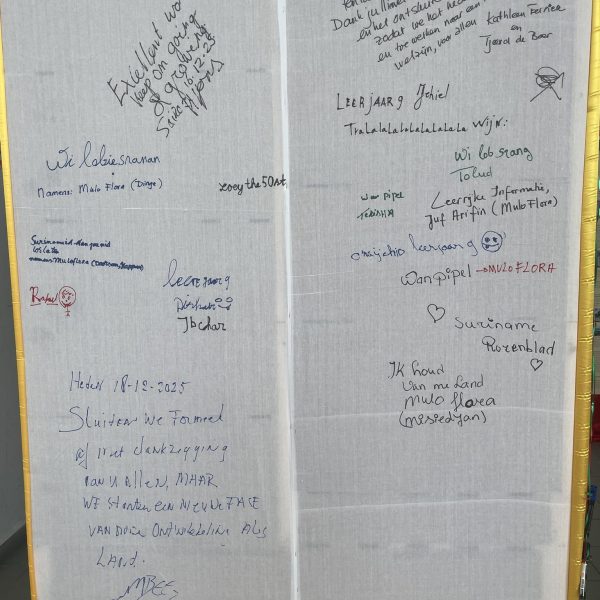 Excellent
keep on going
& growing
16.12.25
Wi lobie sranan
Namens: Mulo Flora (Dinge)
Zoey the 50st
los late
namens Muloflora
leerjaarg
Jbchar
Heden 18-12-2025
Sluiten we Formeel
af met dankzegging
aan U allen, MAAR
WE Starten een NIEUWE FASE
VAN ONZE ONTWIKKELING ALS
LAND.
MBEE
Dank jullie
en het
zodat we het
en toe werken naar een
welzijn, voor allen
Kathleen Ferrier
en
Tjeerd de Boer
LEERJAAR 9 Ichiel
Tralalalalalalalalala WIJN:
Wi lob srang
Tolud
Wan pipel
Leerrijke Informatie,
Juf Arifin (Mulo Flora)
leerjaarg
Wanpipel → MULO FLORA
Suriname
Rozenblad
Ik houd
Van me Land
Mulo flora
(misiedjan)